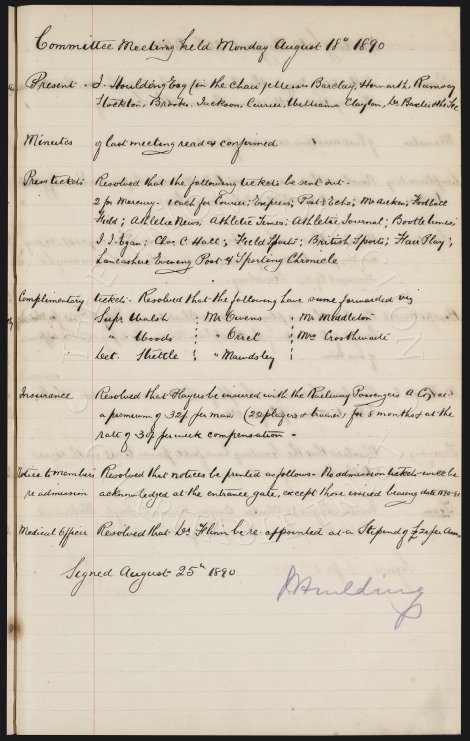 Committee Meeting held Monday August 18th 1890
Present - J. Houlding Esq (in the chair) Messrs Barclay, Howarth, Ramsay
Stockton, Brooks, Jackson, Currier, Williams, Clayton, Dr Baxter & the Sec
Minutes of last meeting read & confirmed
Press tickets Resolved that the following tickets be sent out -
2 for Mercury - 1 each for Courier; Express; Post; Echo; McAicken; Football
Field; Athletic News; Athletic Times; Athletic Journal; Bootle Times;
J. J. Egan; Chas C. Hall; Field Sports; British Sports; Fair Play;
Lancashire Evening Post & Sporting Chronicle
Complimentary tickets - Resolved that the following have some forwarded viz
Supr Walsh ; Mr Owens ; Mr Middleton
" Woods ; " ; Mrs Crosthwaite
Det. Skittle ; " Mawdsley ;
Insurance Resolved that Players be insured with the Railway Passengers A Co. at
a premium of 32/ per man (22 players & trainer) for 8 months & at the
rate of 30/ per week compensation -
Notice to members Resolved that notices be printed as follows - No admission tickets will be
re admission acknowledged at the entrance gate, except those issued bearing date 1890-91
Medical Officer Resolved that Dr Flinn be re-appointed at a Stipend of £20 per Ann.
Signed August 25th 1890
J Houlding